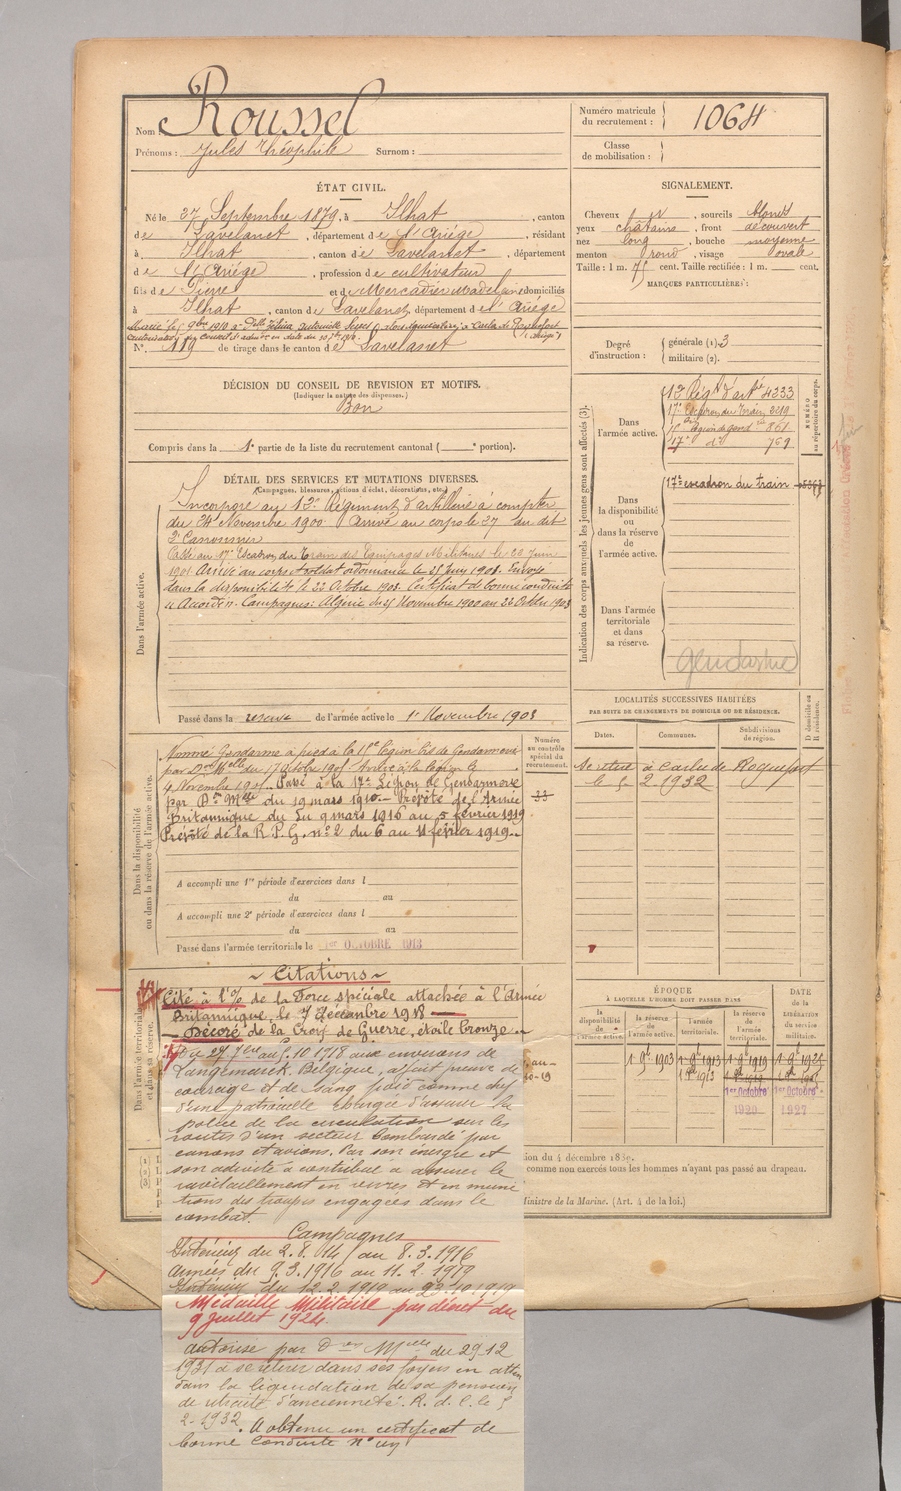 Nom : Roussel
Prénoms : Jules Théophile Surnom :
Numéro matricule du recrutement : 1064
Classe de mobilisation :
ÉTAT CIVIL.
Né le 27 Septembre 1879, à Ilhat, canton
de Lavelanet, département de l'Ariège, résidant
à Ilhat, canton de Lavelanet, département
de l'Ariège, profession de cultivateur
fils de Pierre et de Mercadier Madeleine domiciliés
à Ilhat, canton de Lavelanet, département de l'Ariège
Marié le 5 9bre 1910 à Delle
N°. 119 de tirage dans le canton de Lavelanet
SIGNALEMENT.
Cheveux sourcils blonds
yeux châtains, front découvert
nez long, bouche moyenne
menton rond, visage ovale
Taille : 1 m. 75 cent. Taille rectifiée : 1 m. cent.
MARQUES PARTICULIÈRES :
Degré d'instruction : générale (1). 3
militaire (2).
DÉCISION DU CONSEIL DE REVISION ET MOTIFS.
(Indiquer la nature des dispenses.)
Bon
Compris dans la 1e partie de la liste du recrutement cantonal ( portion).
DÉTAIL DES SERVICES ET MUTATIONS DIVERSES.
(Campagnes, blessures, actions d'éclat, décorations, etc.)
Dans l'armée active.
Incorporé au 12e Régiment d'artillerie à compter
du 24 Novembre 1900 Arrivé au corps le 27 du dit
2e Canonnier
Passé au 17e Escadron du Train des Equipages Militaires le 20 Juin
1901 Arrivé au corps et soldat ordonnance le 25 Juin 1901. Envoyé
dans la disponibilité le 22 Octobre 1903. Certificat de bonne conduite
Accordé. Campagnes : Algérie du 25 Novembre 1900 au 22 Octobre 1903
Passé dans la réserve de l'armée active le 1er Novembre 1903
Indication des corps auxquels les jeunes gens sont affectés (3).
NUMÉRO au répertoire du corps.
Dans l'armée active.
12e Régt d'artie 4333
17e Escadron du Train 2219
légion de gend 861
17e do 769
Dans la disponibilité ou dans la réserve de l'armée active.
17e escadron du train
Dans l'armée territoriale et dans sa réserve.
Gendarme
Dans la disponibilité ou dans la réserve de l'armée active.
Numéro au contrôle spécial du recrutement.
Nommé Gendarme à pied à la légion bis de Gendarmerie
par Don Mlle du 17 Octobre Arrivé à la légion le
4 Novembre Passé à la 17e Légion de Gendarmerie
par Don Mlle du 19 mars 1910 — Prévôté de l'Armée
Britannique du 9 mars 1916 au 5 février 1919
Prévôté de la R. P. G. n° 2 du 6 au 11 février 1919.
33
A accompli une 1re période d'exercices dans l
du au
A accompli une 2e période d'exercices dans l
du au
Passé dans l'armée territoriale le 1er OCTOBRE 1913
LOCALITÉS SUCCESSIVES HABITÉES
PAR SUITE DE CHANGEMENTS DE DOMICILE OU DE RÉSIDENCE.
Dates. Communes. Subdivisions de région. D domicile ou R résidence.
Se retire à Carla de Roquefort
le 5 2 1932
Dans l'armée territoriale et dans sa réserve.
~ Citations ~
Cité à l'% de la Force spéciale attachée à l'Armée
Britannique, le 7 décembre 1918 —
— Décoré de la Croix de Guerre, étoile bronze —
Du 29 7bre au 5. 10 1918 aux environs de
Langemarck, Belgique, a fait preuve de
courage et de sang froid comme chef
d'une patrouille chargée d'assurer la
police de la circulation sur les
routes d'un secteur bombardé par
canons et avions. Par son énergie et
son activité a contribué à assurer le
ravitaillement en vivres et en muni
tions des troupes engagées dans le
combat.
Campagnes
Intérieur du 2. 8. 14 au 8. 3. 1916
armées du 9. 3. 1916 au 11. 2. 1919
Intérieur du 12. 2. 1919 au 10. 1919
Médaille Militaire par décret du
9 Juillet 1924.
autorisé par Don Mlle du 29-12
1931 à se retirer dans ses foyers en atten
dans la liquidation de sa pension
de retraite d'ancienneté. R. d. C. le 5
2-1932. A obtenu un certificat de
bonne conduite
ÉPOQUE
À LAQUELLE L'HOMME DOIT PASSER DANS
la disponibilité de l'armée active.
la réserve de l'armée active.
l'armée territoriale.
la réserve de l'armée territoriale.
DATE de la LIBÉRATION du service militaire.
1er Octobre 1920
1er Octobre 1927
tion du 4 décembre 1889.
comme non exercés tous les hommes n'ayant pas passé au drapeau.
Ministre de la Marine. (Art. 4 de la loi.)